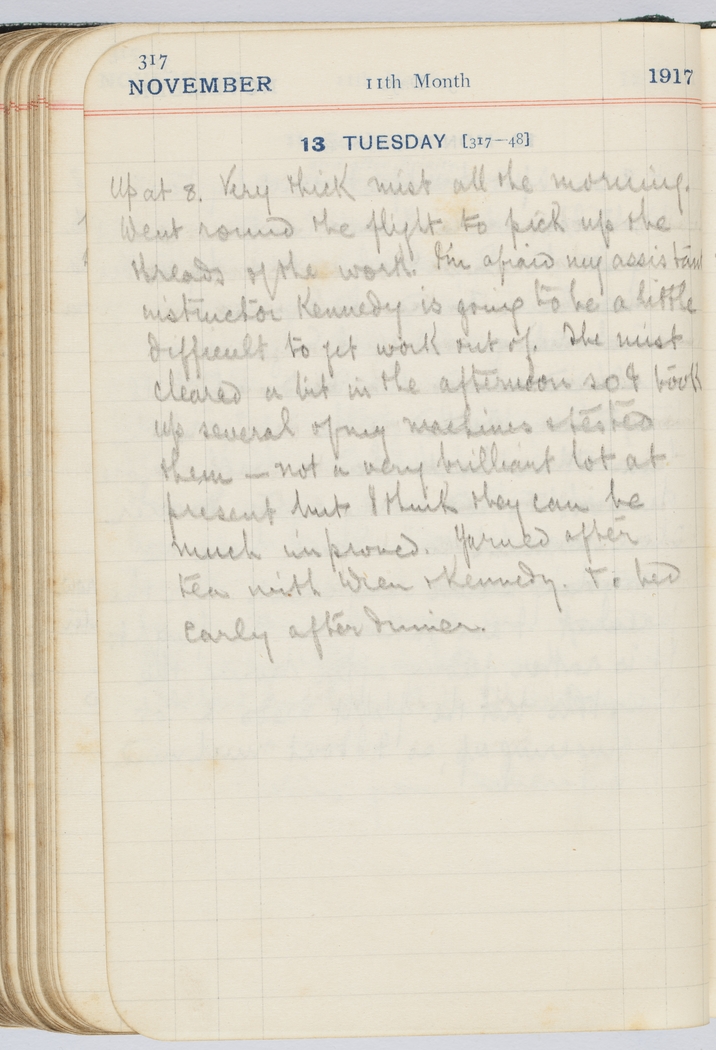 317
NOVEMBER 11th Month 1917
13 TUESDAY [317-48]
Up at 8. Very thick mist all the morning.
Went round the flight to pick up the
threads of the work. I'm afraid my assistant
instructor Kennedy is going to be a little
difficult to get work out of. The mist
cleared a bit in the afternoon so I took
up several of my machines & tested
them — not a very brilliant lot at
present but I think they can be
much improved. Yarned after
tea with & Kennedy. To bed
early after dinner.